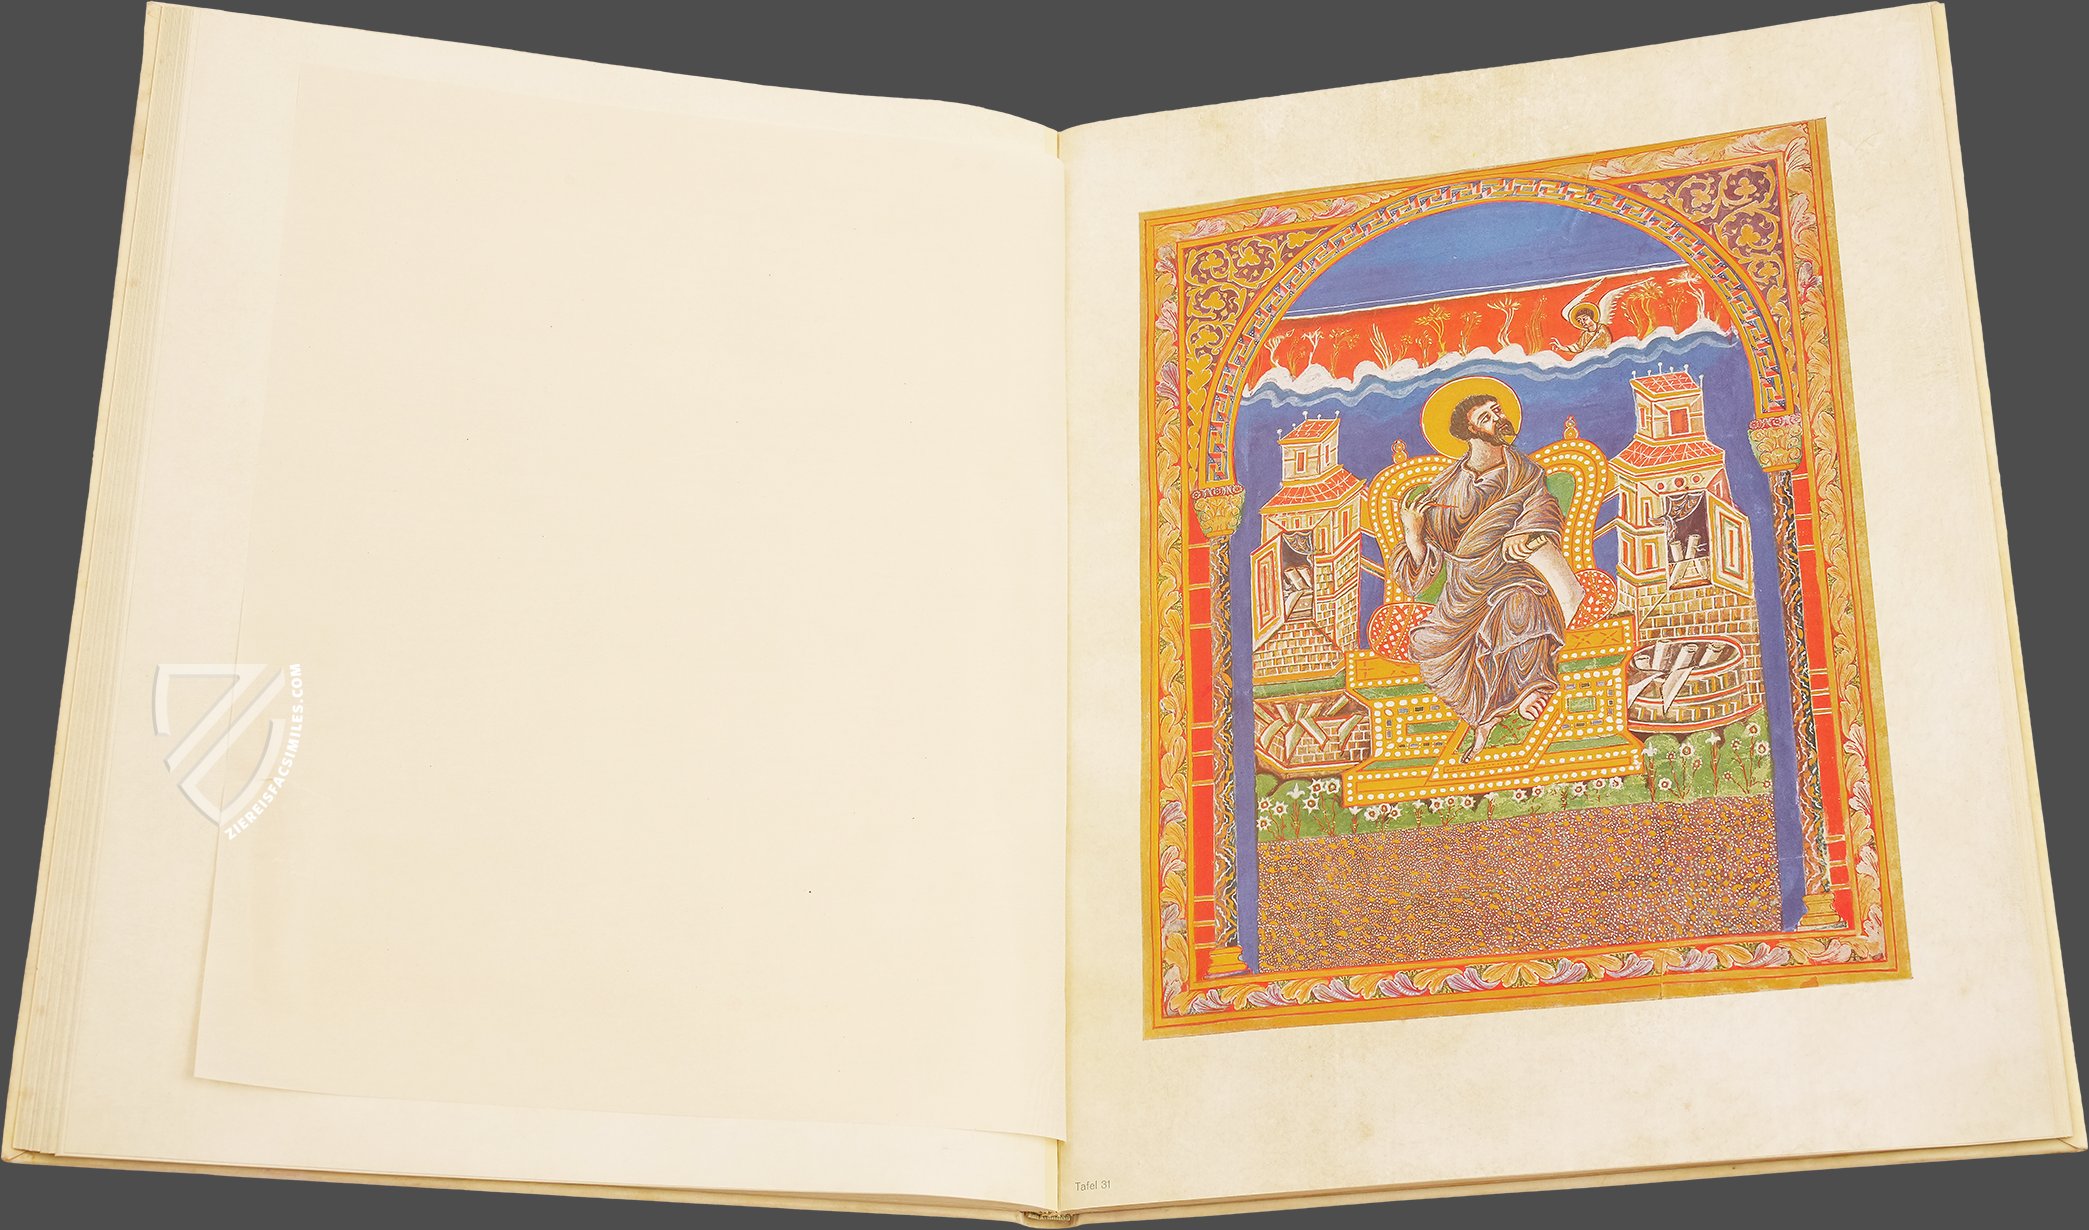 ZIEREISFACSIMILES.COM
Tafel 31